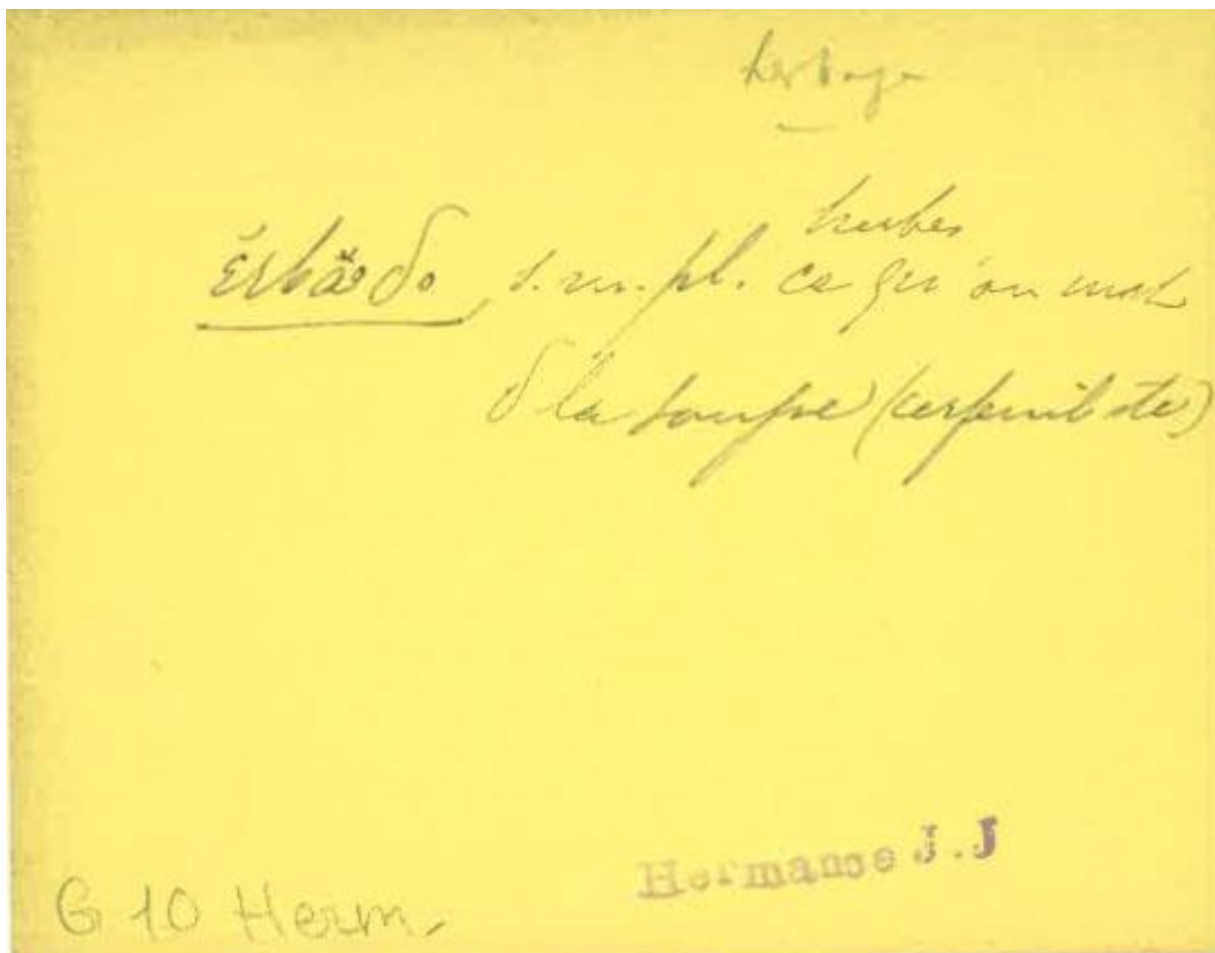 herbage
ĕrbăo do, s. m. pl. herbes ce qu'on met
d la soupe (cerfeuil etc)
Hermance J.J
G 10 Herm.